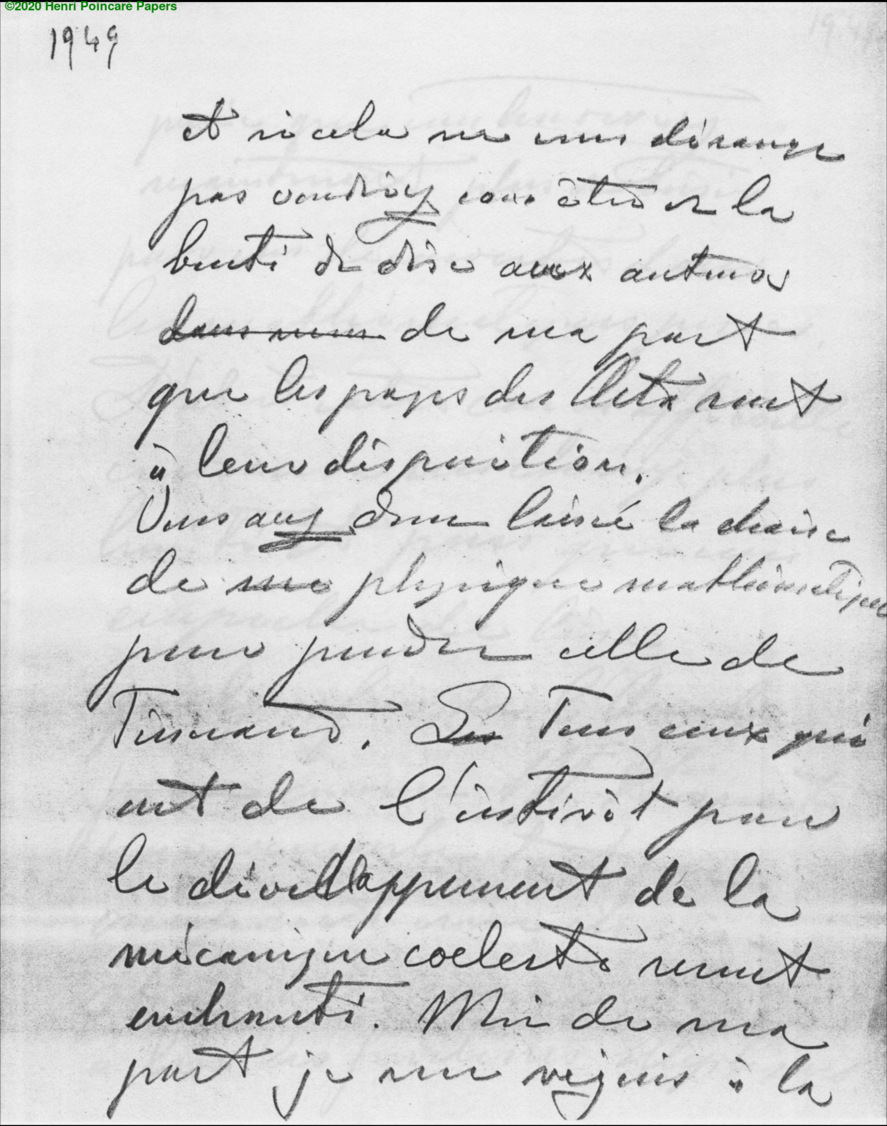 ©2020 Henri Poincaré Papers
1949
et si cela ne vous dérange
pas voudriez vous être de la
bonté de dire aux autres
dans mon de ma part
que les pages des Acta sont
à leur disposition.
Vous avez donc laissé la chaise
de physique mathématique
pour prendre celle de
Tisserand. Tous ceux qui
ont de l'intérêt pour
le dévellappement de la
mécanique coeleste seront
enchanté. Moi de ma
part je me rejouis à la